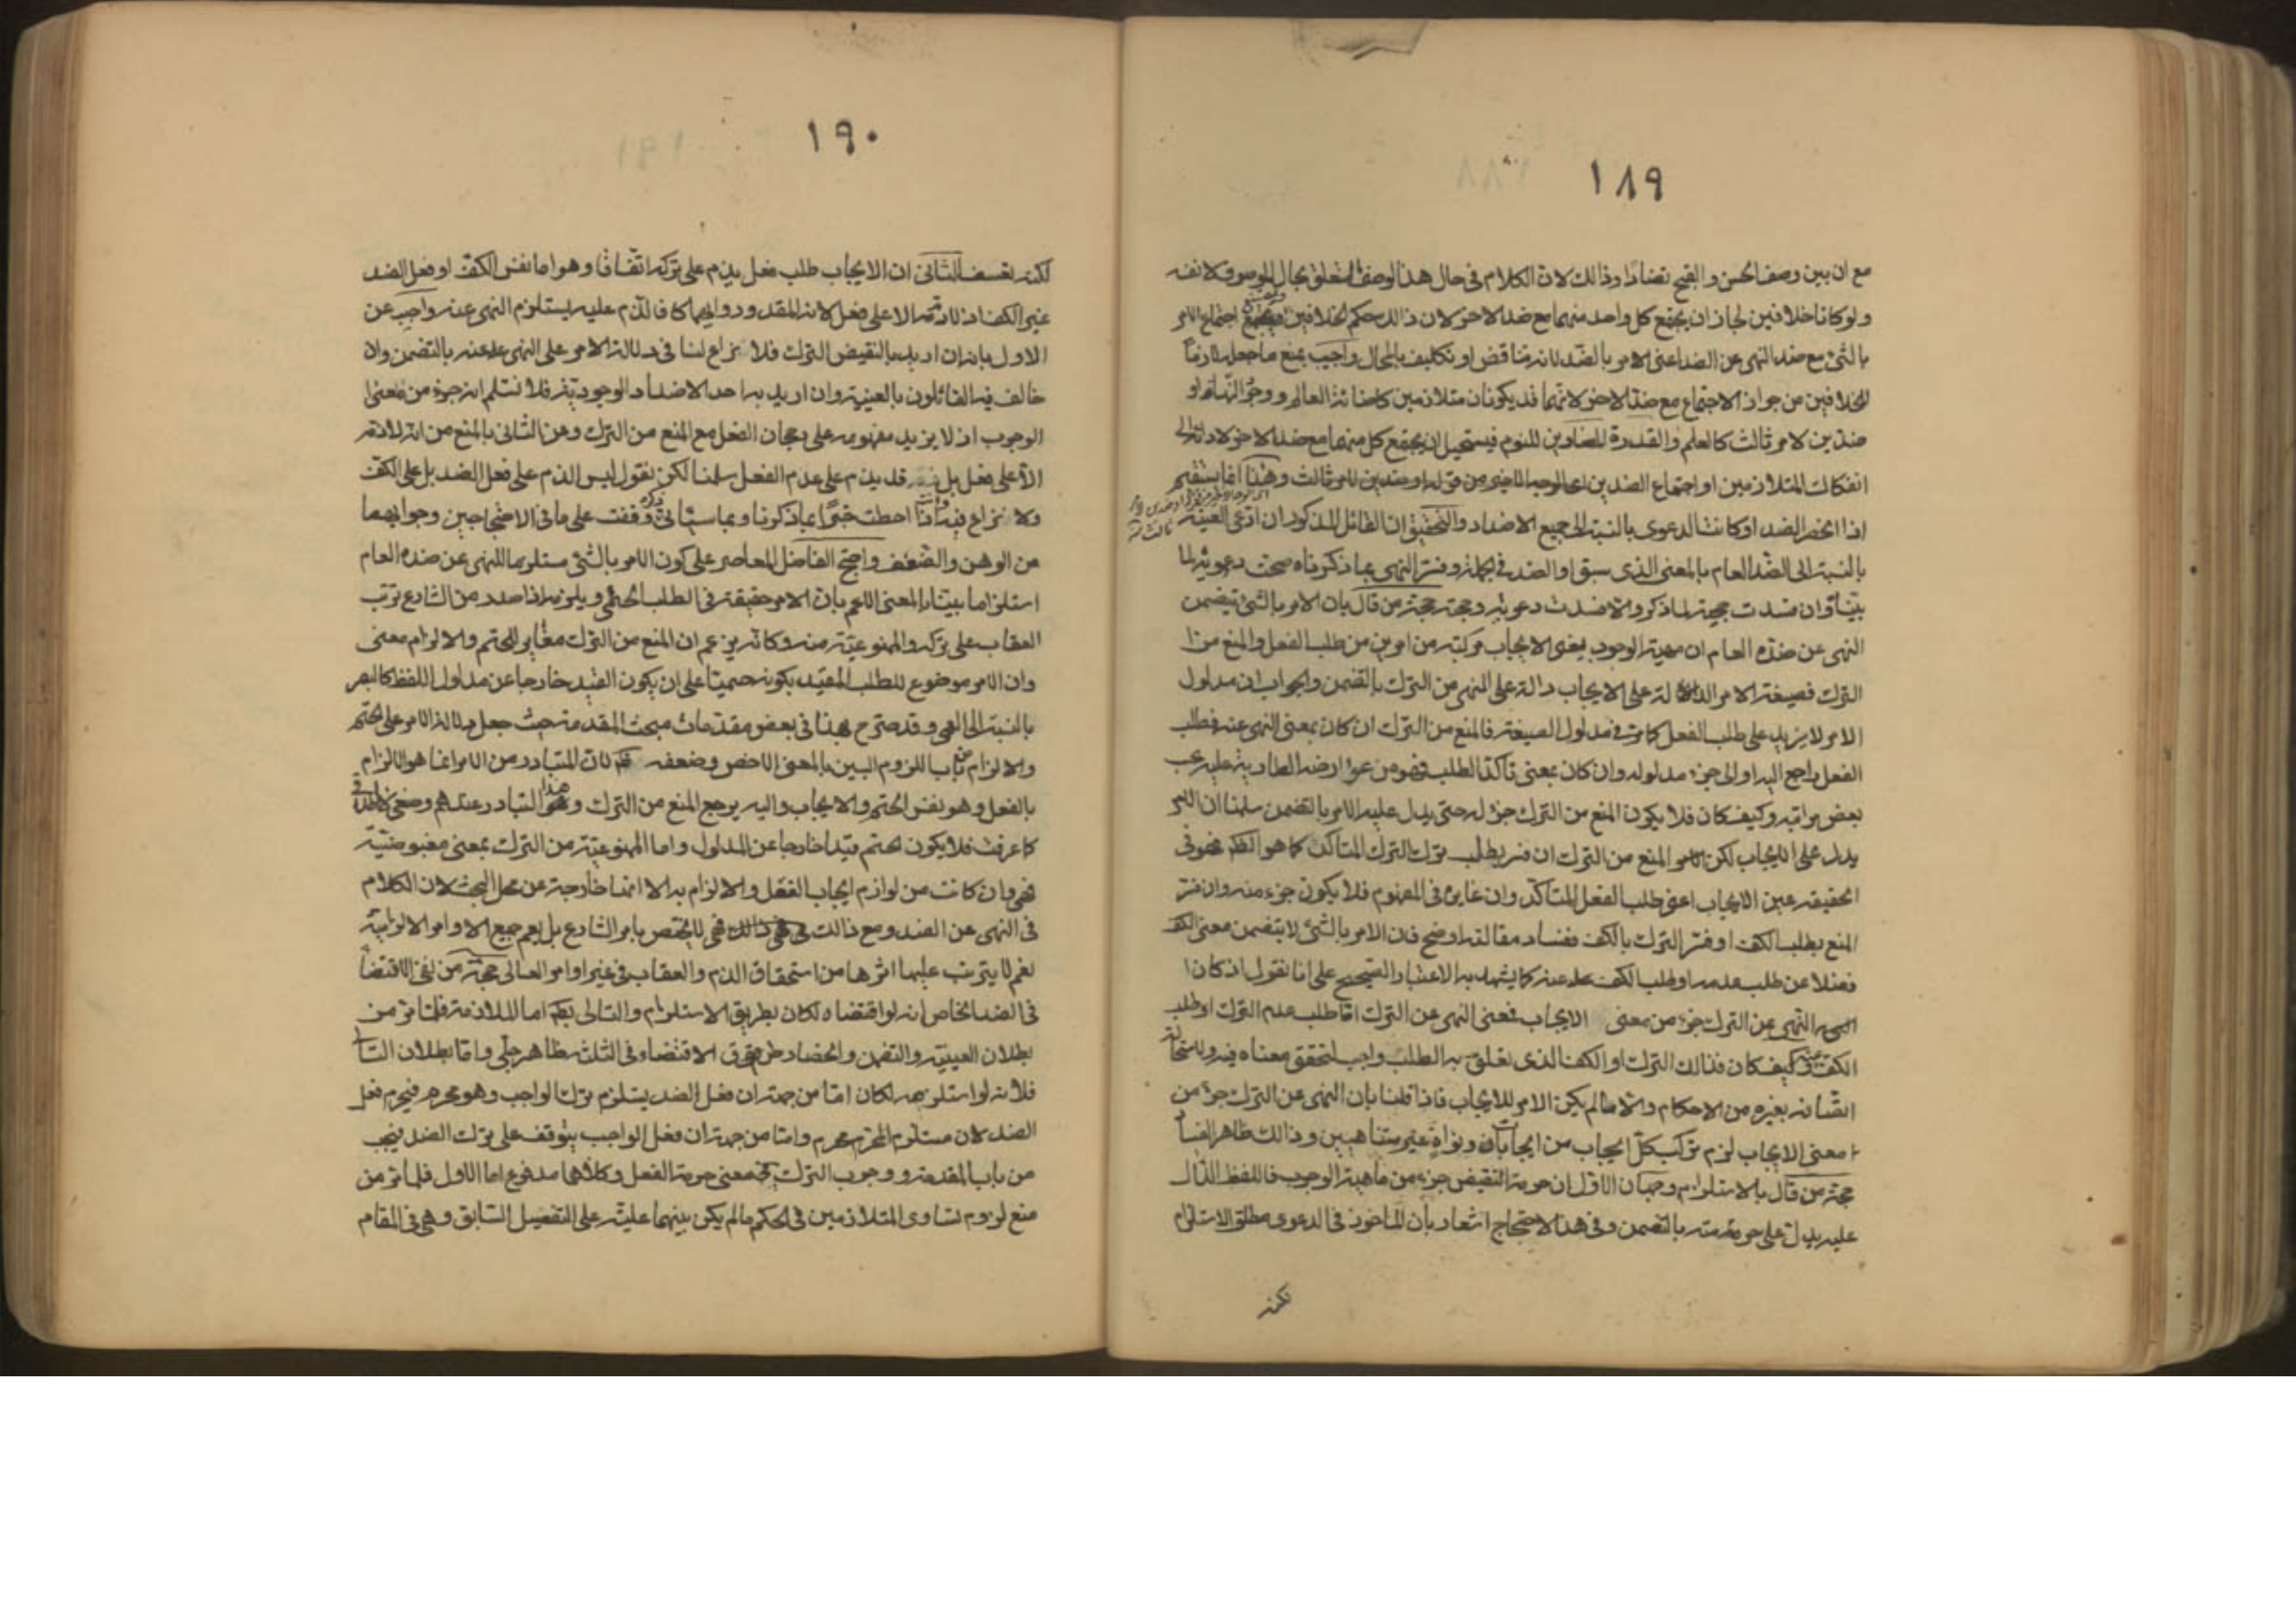 ١٨٩
مع ان بين وصف الحسن والقبح تضادا وذالك لان الكلام فى حال هذا الوصف المتعلق بحال الموصوف لا نفسه
ولو كانا خلافين لجاز ان يجتمع كل واحد منهما مع ضد الاخر لان ذالك حكم الخلافين اجتماع الامر
بالشئ مع ضد النهى عن الضد اعنى الامر بالضد لانه تناقض او تكليف بالمحال واجيب بمنع ما جعله لازما
للخلافين من جواز الاجتماع مع ضد الاخر لانهما قد يكونان متلازمين كاضائة العالم ووجود النهار او
ضدين لامر ثالث كالعلم والقدرة المضادين للنوم فيستحيل ان يجتمع كل منهما مع ضد الاخر لادائه الى
انفكاك المتلازمين او اجتماع الضدين اى الوجه الاخير من قوله او ضدين لامر ثالث وهذا انما يستقيم
اذا انحصر الضد او كانت الدعوى بالنسبة الى جميع الاضداد والتحقيق ان القائل المذكور ان ادعى العينية
بالنسبة الى الضد العام بالمعنى الذى سبق او الضد فى الجملة وفسر النهى بما ذكرناه صحت دعويه لما
بينا وان فسدت حجته لما ذكر والا فسدت دعويه وحجته حجة من قال بان الامر بالشئ يتضمن
النهى عن ضده العام ان مهية الوجوب يعنى الايجاب مركبة من امرين من طلب الفعل والمنع من
الترك فصيغة الامر الدالة على الايجاب دالة على النهى من الترك بالتضمن والجواب ان مدلول
الامر لا يزيد على طلب الفعل كما مر فى مدلول الصيغة فالمنع من الترك ان كان بمعنى النهى عنه فطلب
الفعل راجع اليه او الى جزء مدلوله وان كان بمعنى تاكد الطلب فهو من عوارضه الطارية عليه بحسب
بعض مراتبه وكيف كان فلا يكون المنع من الترك جزء له حتى يدل عليه الامر بالتضمن سلمنا ان الامر
يدل على الايجاب لكن المنع من الترك ان فسر بطلب ترك الترك المتاكد كما هو الظ فهو فى
الحقيقة عين الايجاب اعنى طلب الفعل المتاكد وان غايره فى المفهوم فلا يكون جزء منه وان فسر
المنع بطلب الكف او فسر الترك بالكف ففساد مقالته اوضح فان الامر بالشئ لا يتضمن معنى الكف
فضلا عن طلب عدمه او طلب الكف عنه كما يشهد به الاعتبار الصحيح على انا نقول اذ كان
النهى عن الترك جزء من معنى الايجاب فمعنى النهى عن الترك اما طلب عدم الترك او طلب
الكف عنه وكيف كان فذالك الترك او الكف الذى تعلق به الطلب واجب لتحقق معناه فيه ولاستحالة
اتصافه بغيره من الاحكام والا لم يكن الامر للايجاب فاذا قلنا بان النهى عن الترك جزء من
معنى الايجاب لزم تركب كل ايجاب من ايجابات ونواه غير متناهيين وذالك ظاهر الفساد
حجة من قال بالاستلزام وجهان الاول ان حرمة النقيض جزء من ماهية الوجوب فاللفظ الدال
عليه يدل على حرمته بالتضمن وفى هذا الاحتجاج اشعار بان الماخوذ فى الدعوى مطلق الاستلزام
لكنه
١٩٠
لكنه تعسف الثانى ان الايجاب طلب فعل يذم على تركه اتفاقا وهو اما نفس الكف او فعل الضد
غير الكف اذ لا ذم الا على فعل لانه المقدور وايهما كان فالذم عليه يستلزم النهى عنه واجيب عن
الاول بانه ان اريد بالنقيض الترك فلا نزاع لنا فى دلالة الامر على النهى عنه بالتضمن وان
خالف فيه القائلون بالعينية وان اريد به احد الاضداد الوجودية فلا نسلم انه جزء من معنى
الوجوب اذ لا يزيد مفهومه على رجحان الفعل مع المنع من الترك وعن الثانى بالمنع من انه لا ذم
الا على فعل بل قد يذم على عدم الفعل سلمنا لكن نقول ليس الذم على فعل الضد بل على الكف
ولا نزاع فيه وانت اذا احطت خبرا بما ذكرنا وبما سياتى ذكره وقفت على ما فى الاحتجاجين وجوابهما
من الوهن والضعف واحتج الفاضل المعاصر على كون الامر بالشئ مستلزما للنهى عن ضده العام
استلزاما بينا بالمعنى الاعم بان الامر حقيقة فى الطلب الحتمى ويلزمه اذا صدر من الشارع ترتب
العقاب على تركه والممنوعية منه وكانه يزعم ان المنع من الترك مغاير للتحتم والالزام معنى
وان الامر موضوع للطلب المقيد بكونه حتميا على ان يكون القيد خارجا عن مدلول اللفظ كالبصر
بالنسبة الى العمى وقد صرح بهذا فى بعض مقدمات مبحث المقدمة حيث جعل دلالة الامر على الحتم
والالزام من باب اللزوم البين بالمعنى الاخص وضعفه ظ لان المتبادر من الامر انما هو الالزام
بالفعل وهو نفس الحتم والايجاب واليه يرجع المنع من الترك وهذا هو المتبادر عندهم وضعى
كما عرفت فلا يكون الحتم قيدا خارجا عن المدلول واما الممنوعية من الترك بمعنى مبغوضيته
فهى وان كانت من لوازم ايجاب الفعل والالزام به الا انها خارجة عن محل البحث لان الكلام
فى النهى عن الضد ومع ذالك فهى لا تختص بامر الشارع بل يعم جميع الاوامر الالزامية
نعم لا يترتب عليها اثرها من استحقاق الذم والعقاب فى غير اوامر العالى حجة من نفى الاقتضاء
فى الضد الخاص انه لو اقتضاه لكان بطريق الاستلزام والتالى بط اما الملازمة فلما مر من
بطلان العينية والتضمن وانحصار طرق الاقتضاء فى الثلثة ظاهر جلى واما بطلان التالى
فلانه لو استلزمه لكان اما من جهة ان فعل الضد يستلزم ترك الواجب وهو محرم فيحرم فعل
الضد لان مستلزم المحرم محرم واما من جهة ان فعل الواجب يتوقف على ترك الضد فيجب
من باب المقدمة ووجوب الترك معنى حرمة الفعل وكلاهما مدفوع اما الاول فلما مر من
منع لزوم تساوى المتلازمين فى الحكم ما لم يكن بينهما علية على التفصيل السابق وهى فى المقام